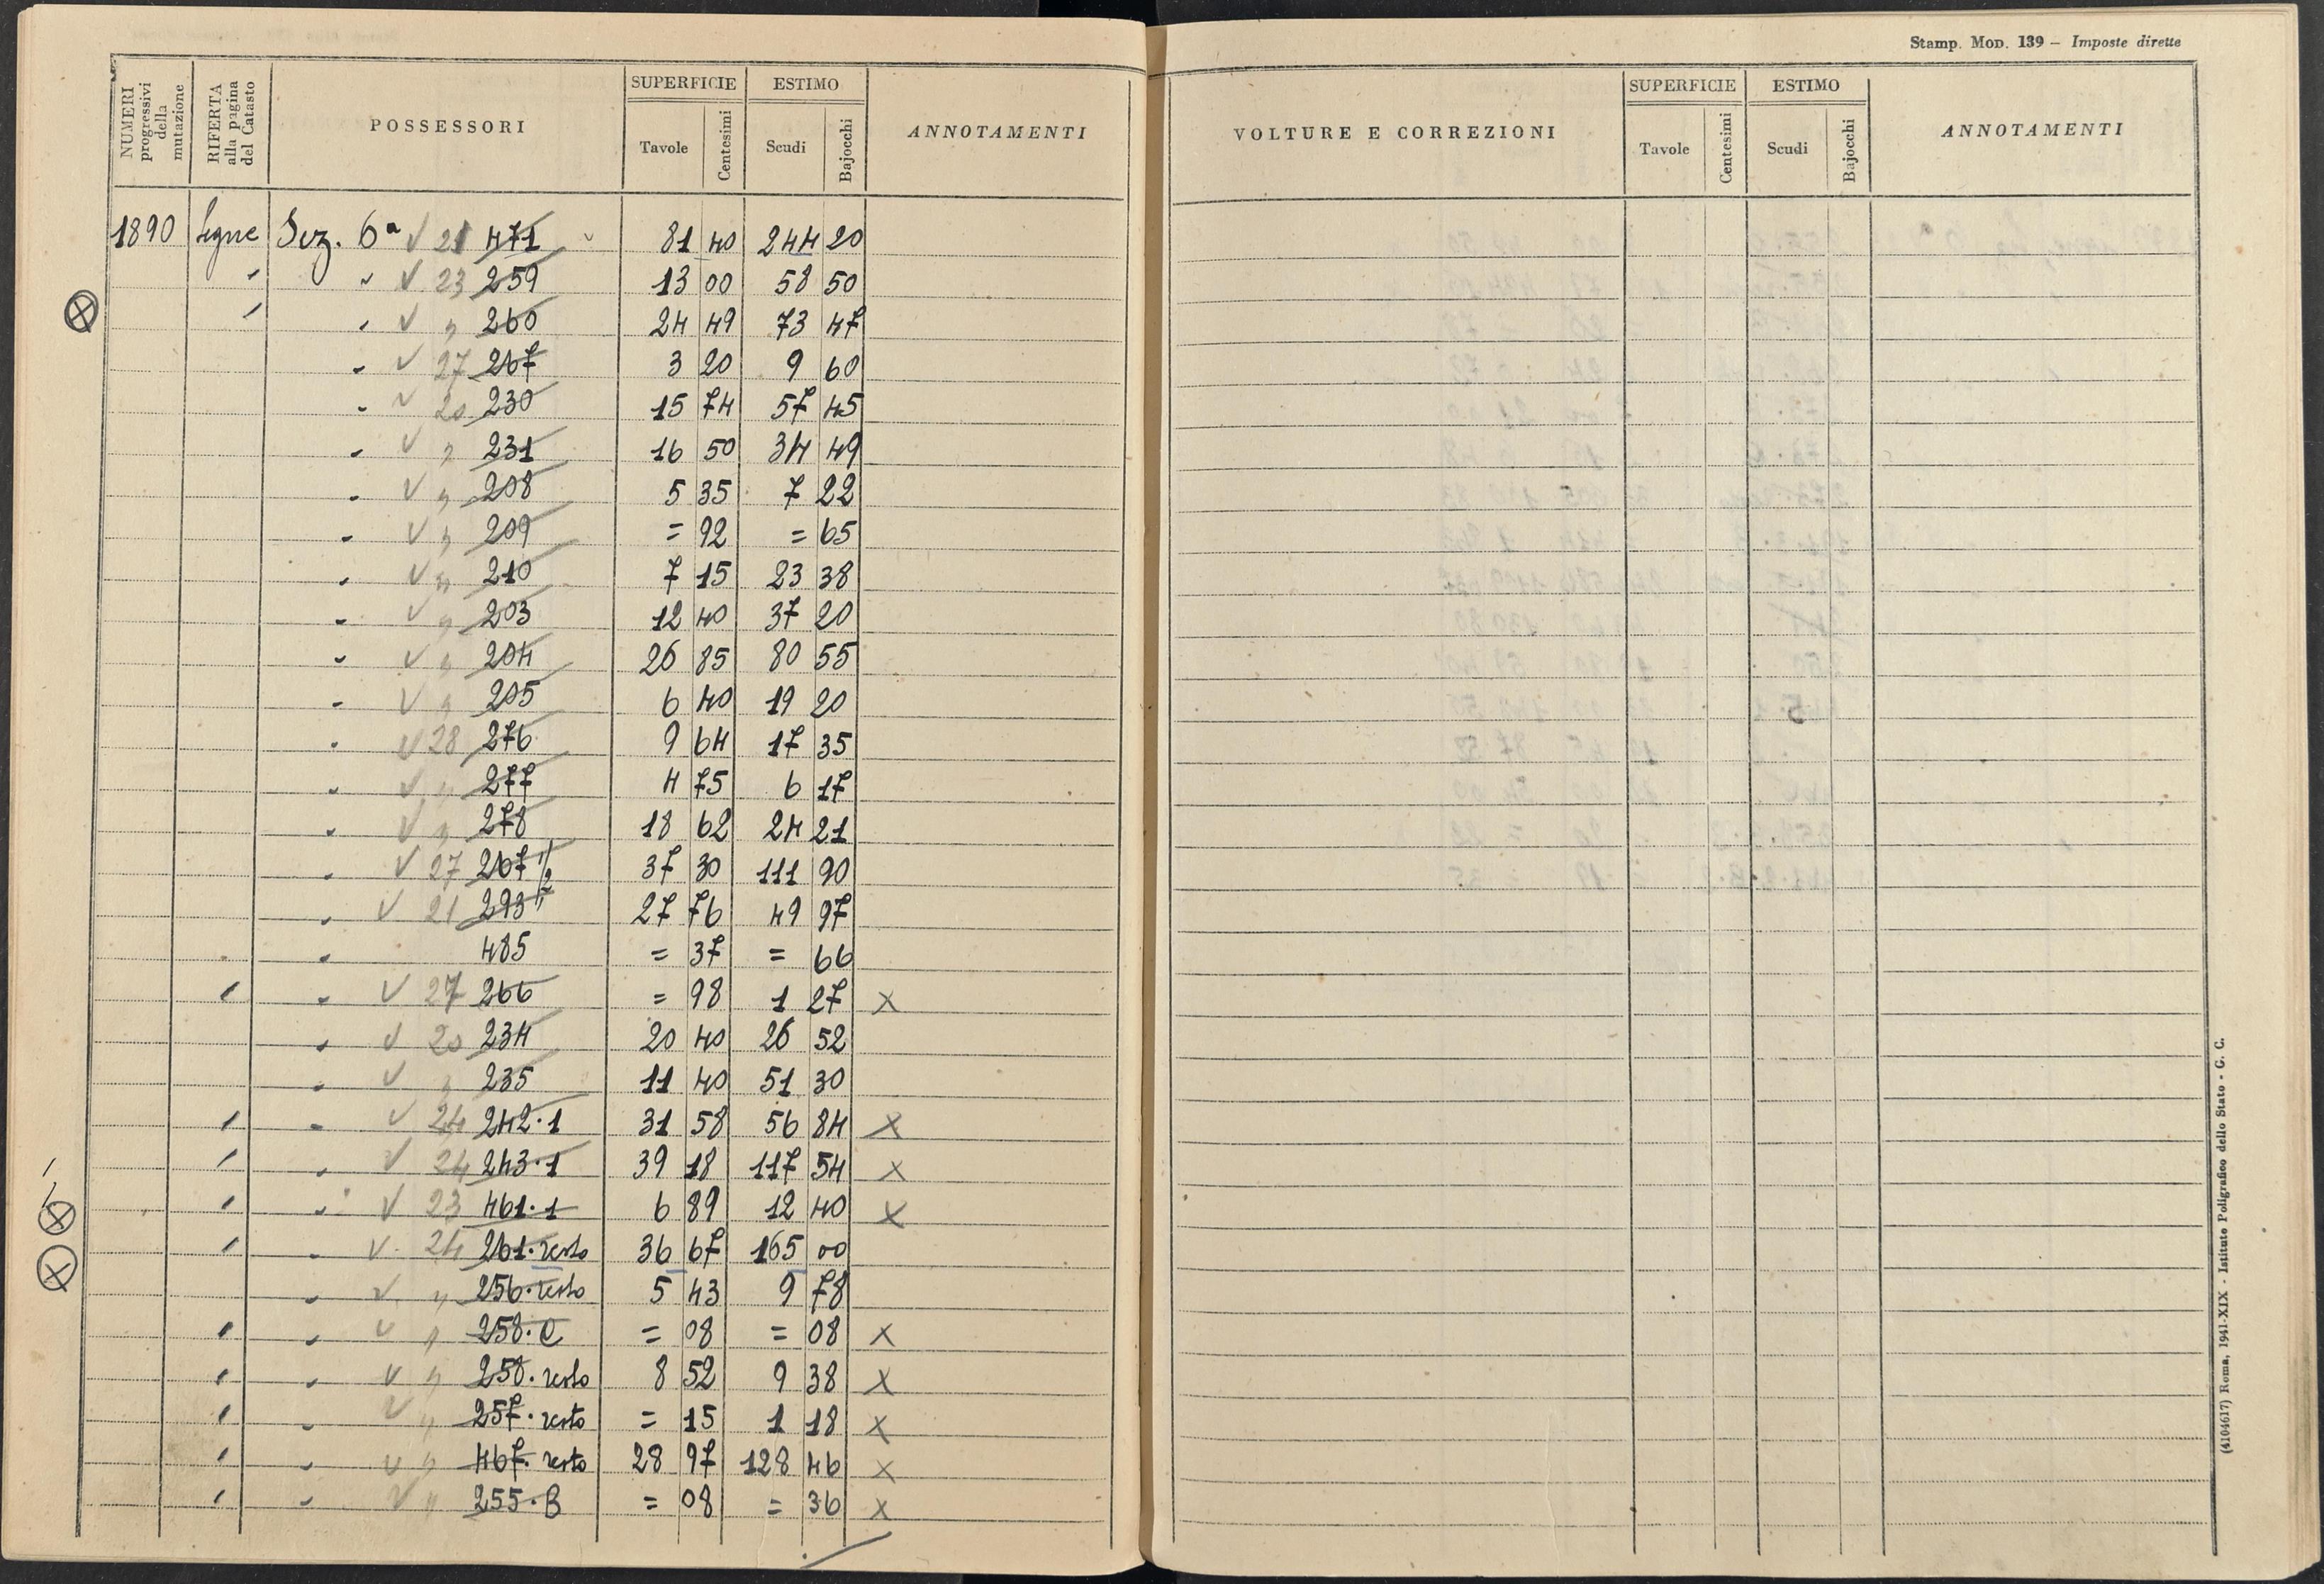 Stamp. Mod. 139 — Imposte dirette
NUMERI progressivi della mutazione
RIFERTA alla pagina del Catasto
POSSESSORI
SUPERFICIE
Tavole
Centesimi
ESTIMO
Scudi
Bajocchi
ANNOTAMENTI
VOLTURE E CORREZIONI
SUPERFICIE
Tavole
Centesimi
ESTIMO
Scudi
Bajocchi
ANNOTAMENTI
1890 segue Sez. 6ª √ 21 471 81 40 244 20
" √ 23 259 13 00 58 50
" √ " 260 24 49 73 47
" √ 27 267 3 20 9 60
" √ 20 230 15 74 57 45
" √ " 231 16 50 34 49
" √ " 208 5 35 7 22
" √ " 209 = 92 = 65
" √ " 210 7 15 23 38
" √ " 203 12 40 37 20
" √ " 204 26 85 80 55
" √ " 205 6 40 19 20
" √ 28 276 9 64 17 35
" √ " 277 4 75 6 17
" √ " 278 18 62 24 21
" √ 27 267 1/2 37 30 111 90
" √ 21 293 27 76 49 97
" 485 = 37 = 66
" √ 27 266 = 98 1 27 X
" √ 20 234 20 40 26 52
" √ " 235 11 40 51 30
" √ 24 242·1 31 58 56 84 X
" √ 24 243·1 39 18 117 54 X
" √ 23 461·1 6 89 12 40 X
" √ 24 261·resto 36 67 165 00
" √ " 256·resto 5 43 9 78
" √ " 258·C = 08 = 08 X
" √ " 258·resto 8 52 9 38 X
" √ " 257·resto = 15 1 18 X
" √ " 467·resto 28 97 128 46 X
" √ " 255·B = 08 = 36 X
(4104617) Roma, 1941-XIX - Istituto Poligrafico dello Stato - G. C.